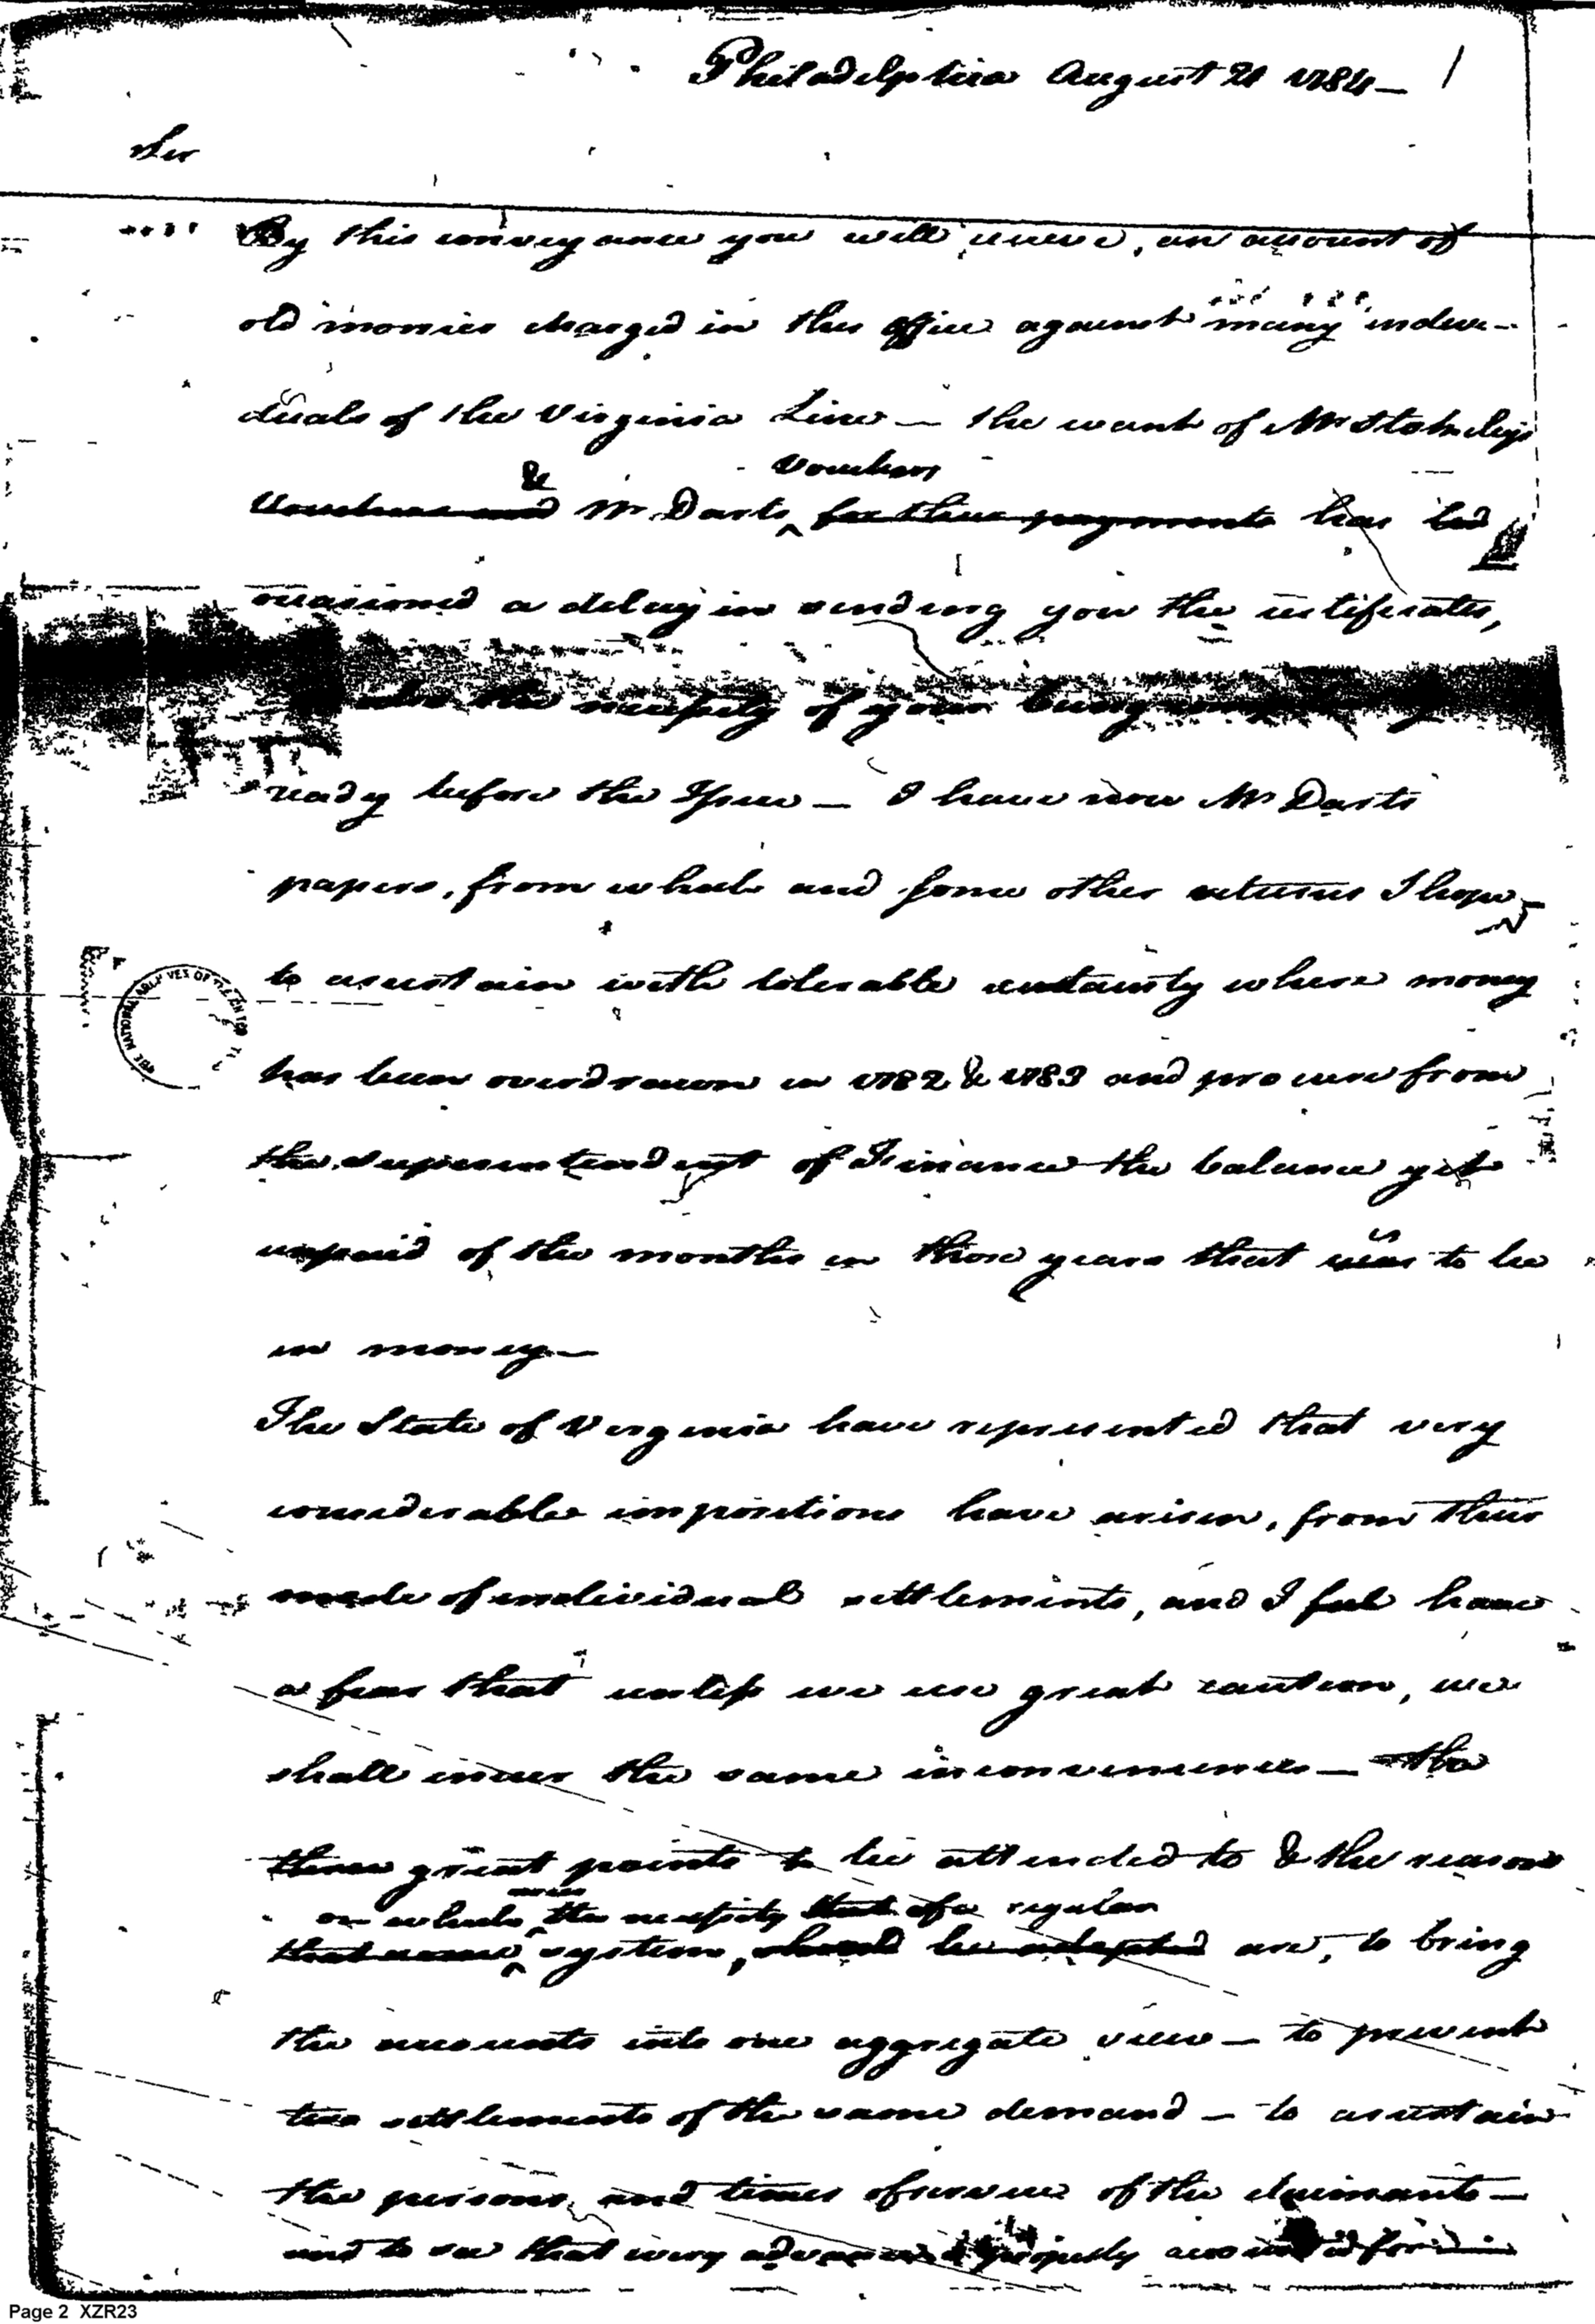 Philadelphia August 21 1784 —
Sir
By this conveyance you will receive, an account of
old monies charged in this office against many indivi-
duals of the Virginia Line — the want of Mr Stokeleys
& Vouchers
Vouchers and Mr Darts for their payments has led
occasioned a delay in sending you the certificates,
also the necessity of your being
ready before the Issue — I have now Mr Darts
papers, from which and some other returns I hope
to ascertain with tolerable certainty where money
THE NATIONAL ARCHIVES OF THE UNITED
has been overdrawn in 1782 & 1783 and procure from
the superintendent of Finance the balance yet
is
unpaid of the months in those years that was to be
in money —
The State of Virginia have represented that very
considerable impositions have arisen, from their
mode of individual settlements, and I feel have
a fear that unless we use great caution, we
shall incur the same inconveniences — the
three great points to be attended to & the reasons
on which the necessity that of a regular
that some system, should be adopted are, to bring
the accounts into one aggregate view — to prevent
two settlements of the same demand — to ascertain
the persons and times of service of the claimants —
and to see that every advance is properly accounted for
Page 2 XZR23